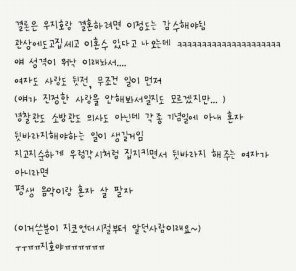 결론은 우지호랑 결혼하려면 이정도는 감수해야됨
관상에도고집세고 이혼수 있다고 나오는데 ㅋㅋㅋㅋㅋㅋㅋㅋㅋㅋㅋㅋㅋㅋㅋㅋㅋㅋㅋㅋㅋㅋ
얘 성격이 워낙 이래놔서....
여자도 사랑도 뒷전, 무조건 일이 먼저
(얘가 진정한 사랑을 안해봐서일지도 모르겠지만... )
경찰관도 소방관도 의사도 아닌데 각종 기념일에 아내 혼자
뒷바라지해야하는 일이 생길거임
지고지순하게 우렁각시처럼 집지키면서 뒷바라지 해주는 여자가
아니라면
평생 음악이랑 혼자 살 팔자
(이거쓴분이 지코언더시절부터 알던사람이래요~)
ㅜㅜㅠㅠ지호야ㅠㅠㅠㅠㅠㅠ